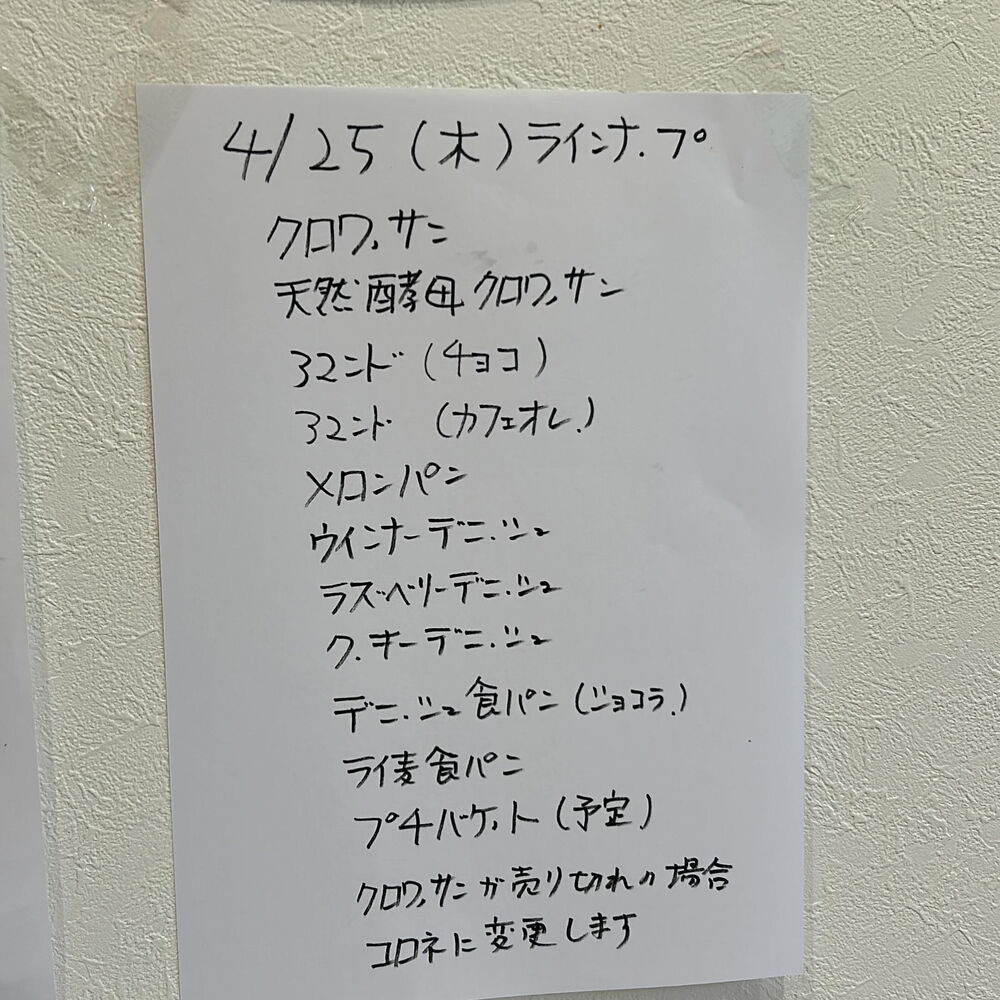 4/25(木)ラインナップ
クロワッサン
天然酵母クロワッサン
32ンド(チョコ)
32ンド(カフェオレ)
メロンパン
ウインナーデニッシュ
ラズベリーデニッシュ
クッキーデニッシュ
デニッシュ食パン(ショコラ)
ライ麦食パン
プチバケット(予定)
クロワッサンが売り切れの場合
コロネに変更します